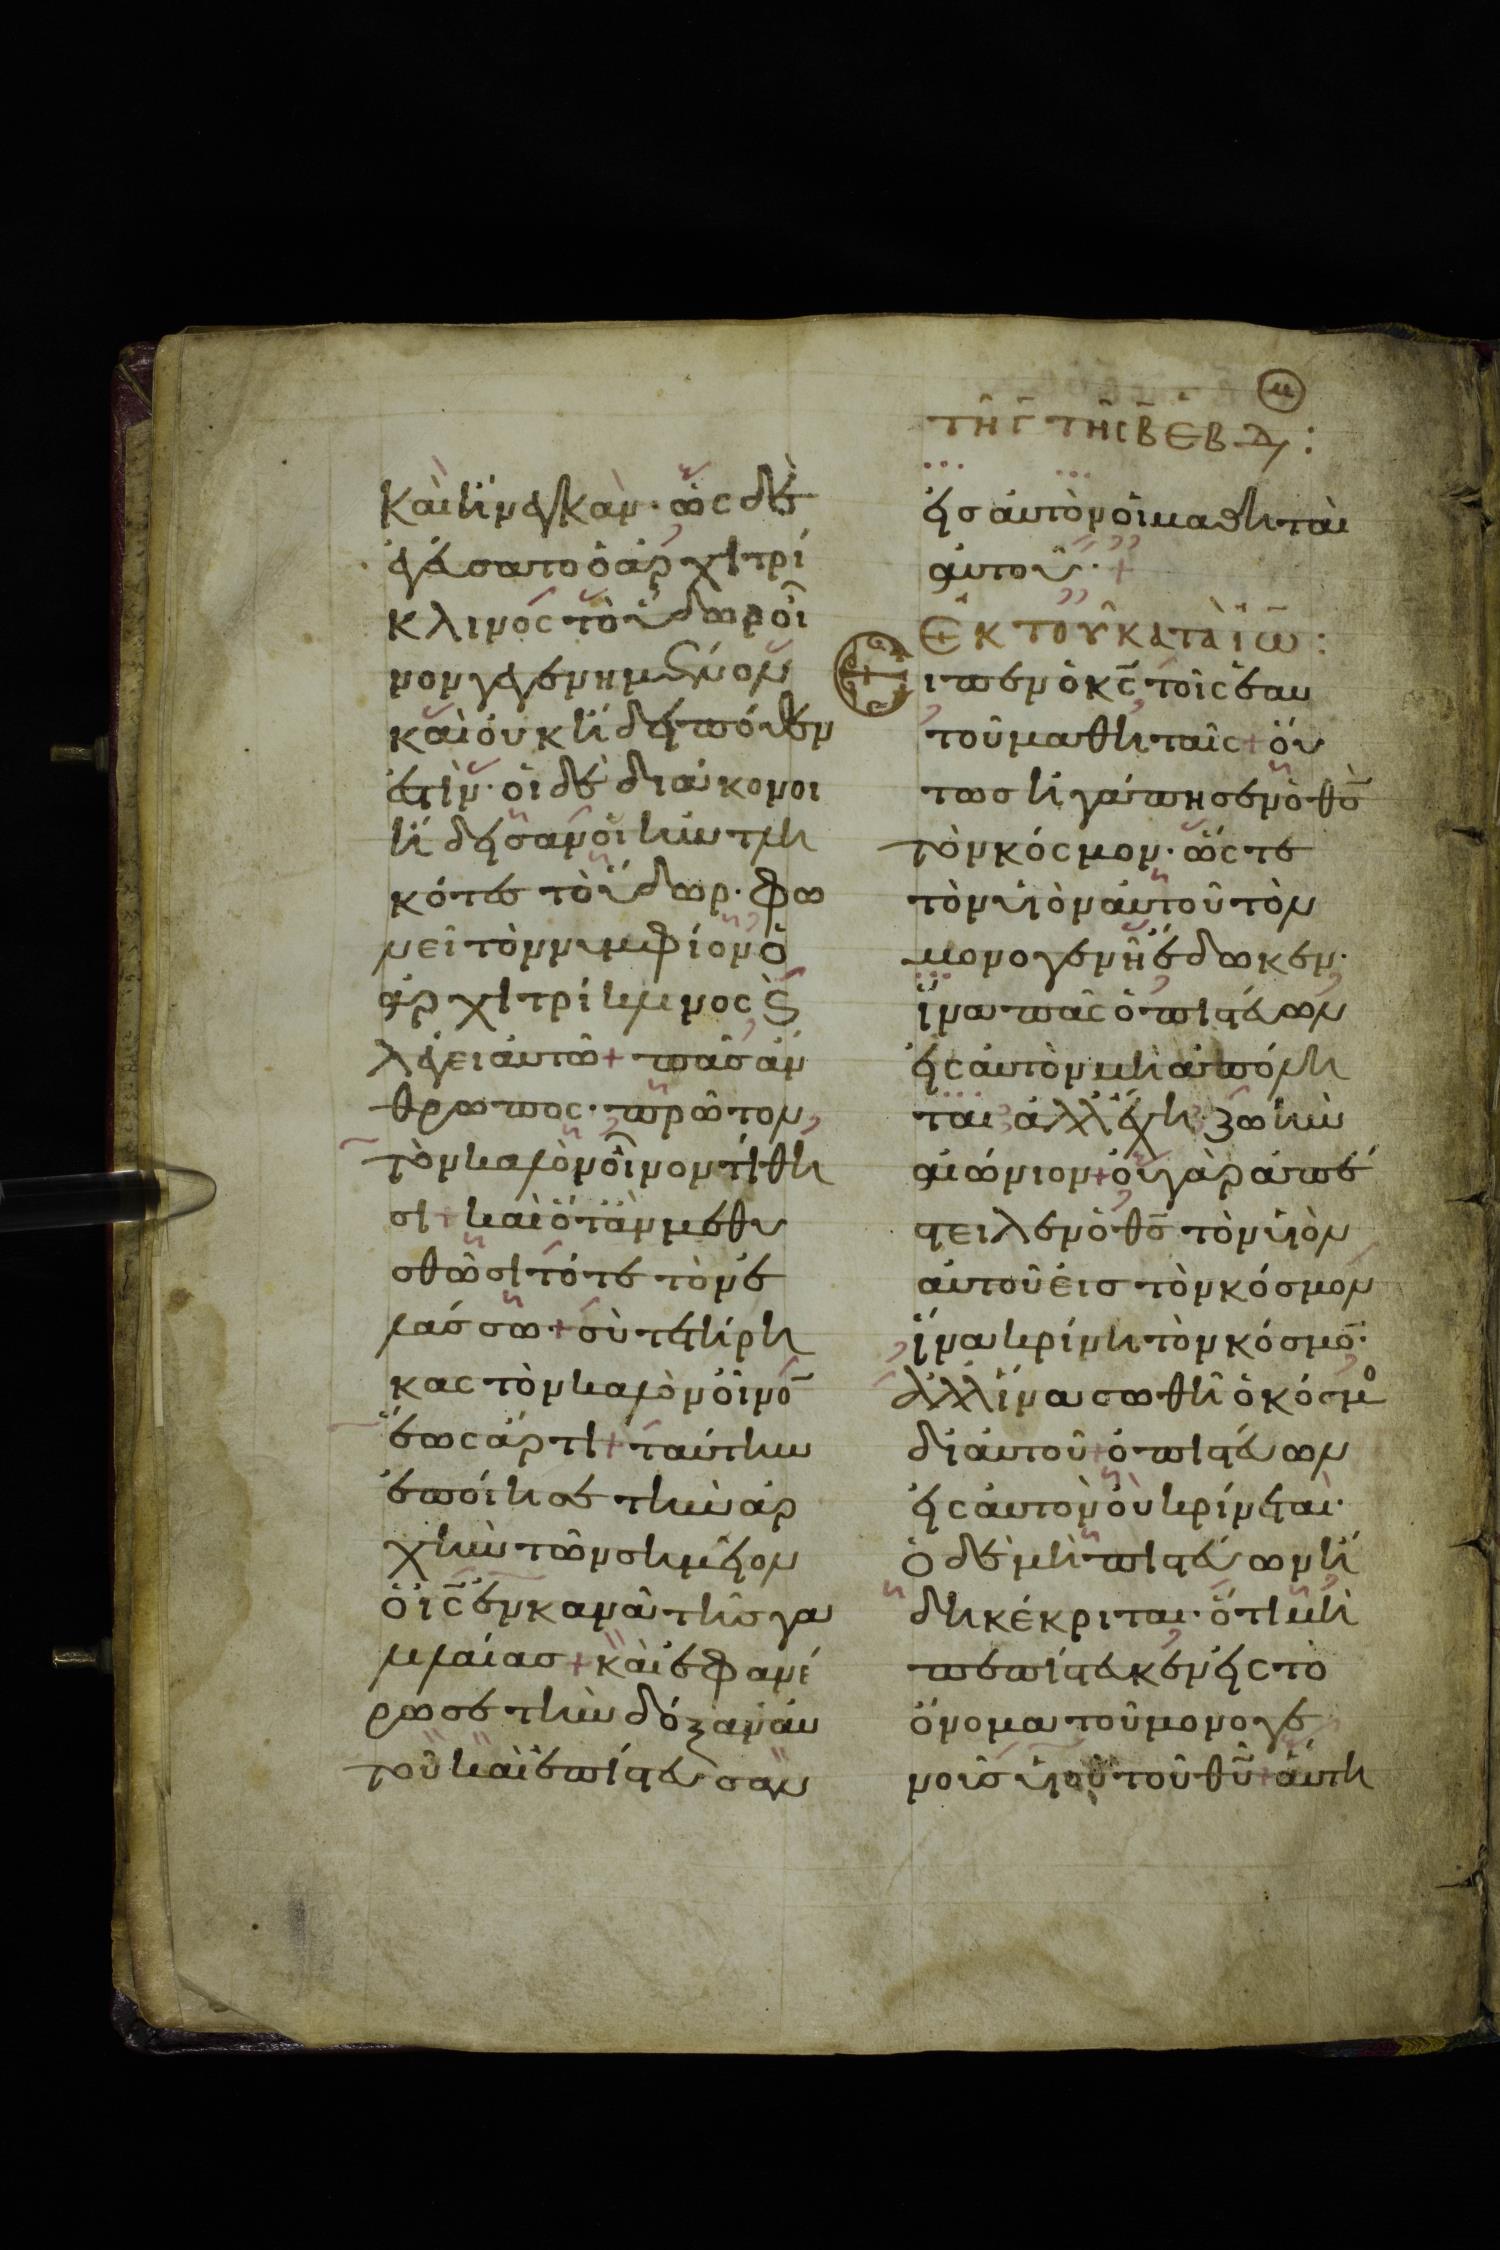 καὶ ἤνεγκαν· ὡς δὲ
ἐγεύσατο ὁ ἀρχιτρί
κλινος τὸ ὕδωρ οἶ
νον γεγενημένον
καὶ οὐκ ἤδει πόθεν
ἐστίν· οἱ δὲ διάκονοι
ἤδεισαν οἱ ἠντλη
κότες τὸ ὕδωρ· φω
νεῖ τὸν νυμφίον ὁ
ἀρχιτρίκλινος ϗ
λέγει αὐτῶ + πᾶς ἄν
θρωπος· πρῶτον
τὸν καλὸν οἶνον τίθη
σι + καὶ ὅταν μεθυ
σθῶσι τότε τὸν ἐ
λάσσω + σὺ τετήρη
κας τὸν καλὸν οἶνο̅
ἕως ἄρτι + ταύτην
ἐποίησε τὴν ἀρ
χὴν τῶν σημείον
ὁ ις̅ ἐν κανᾶ τῆς γα
λιλαίας + καὶ ἐφανέ
ρωσε τὴν δόξαν αὐ
τοῦ καὶ ἐπίστευσαν
μ
τῆ Γ̅ τῆς Β̅ ΕΒΔ :
εἰς αὐτὸν οἱ μαθηταὶ
αὐτοῦ· +
ἐκ τοῦ κατὰ ἰω̅ :
Εἶπεν ὁ κς̅ τοῖς ἑαυ
τοῦ μαθηταῖς + οὕ
τως ἠγάπησεν ὁ θς̅
τὸν κόσμον· ὥστε
τὸν υἱὸν αὐτοῦ τὸν
μονογενῆ ἔδωκεν·
ἵνα πᾶς ὁ πιστεύων
εἰς αὐτὸν μὴ ἀπόλη
ται ἀλλ' ἔχη· ζωὴν
αἰώνιον + οὐ γὰρ ἀπέ
στειλεν ὁ θς̅ τὸν υἱὸν
αὐτοῦ εἰς τὸν κόσμον
ἵνα κρίνη τὸν κόσμο̅·
ἀλλ' ἵνα σωθῆ ὁ κόσμο
δι' αὐτοῦ + ὁ πιστεύων
εἰς αὐτὸν οὐ κρίνεται·
ὁ δὲ μὴ πιστεύων ἤ
δη κέκριται· ὅτι μὴ
πεπίστευκεν εἰς τὸ
ὄνομα τοῦ μονογε
νοῦς υἱοῦ τοῦ θυ̅ + αὕτη